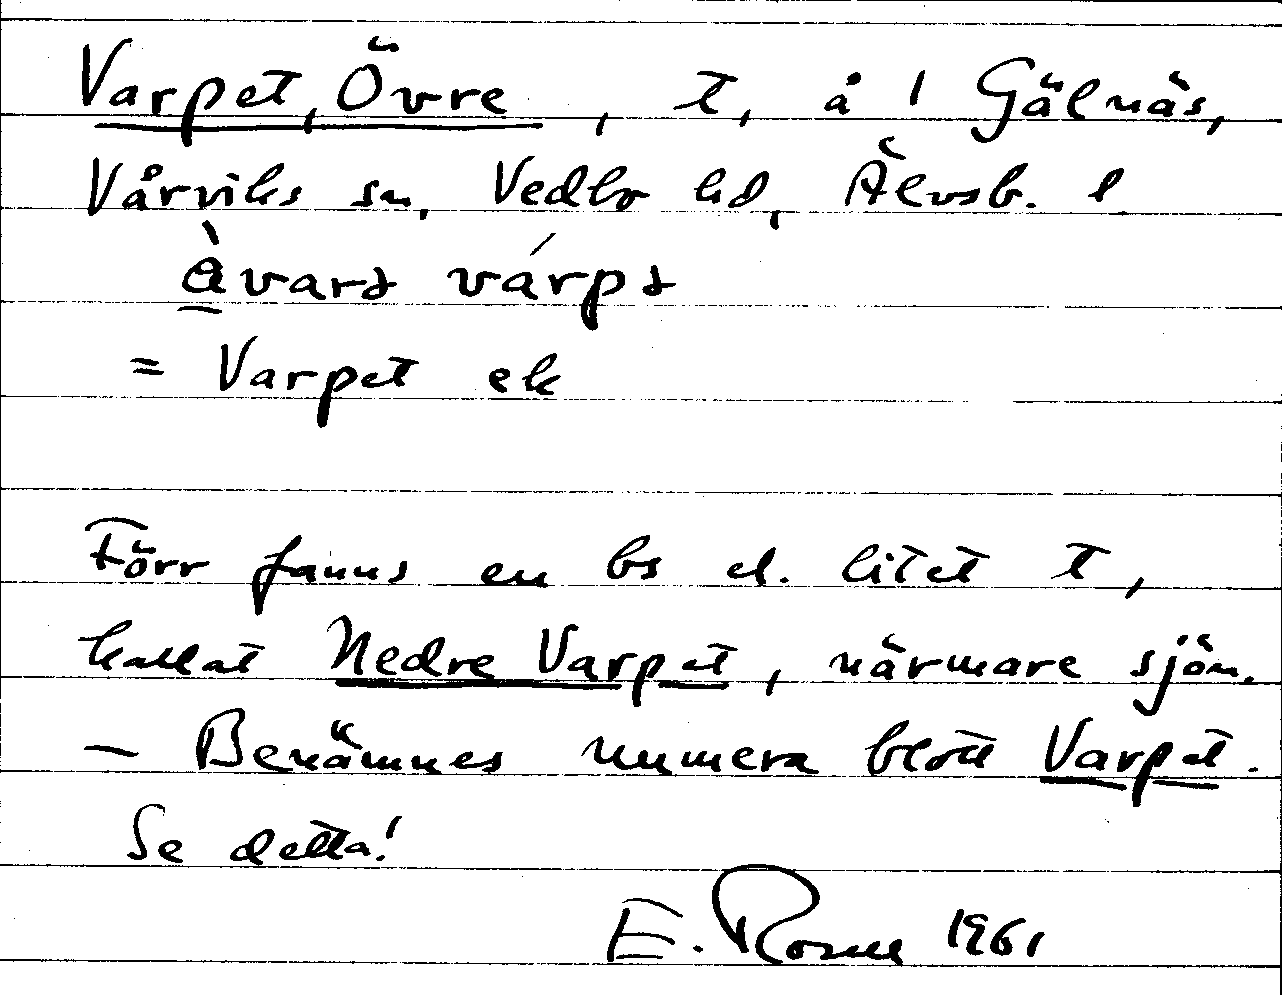 Varpet, Övre, t, å 1 Gälnäs,
Vårviks sn, Vedbo hd, Älvsb. l
= Varpet ek
Förr fanns en bs el. litet t,
kallat Nedre Varpet, närmare sjön.
— Benämnes numera blott Varpet.
Se detta!
E. 1961